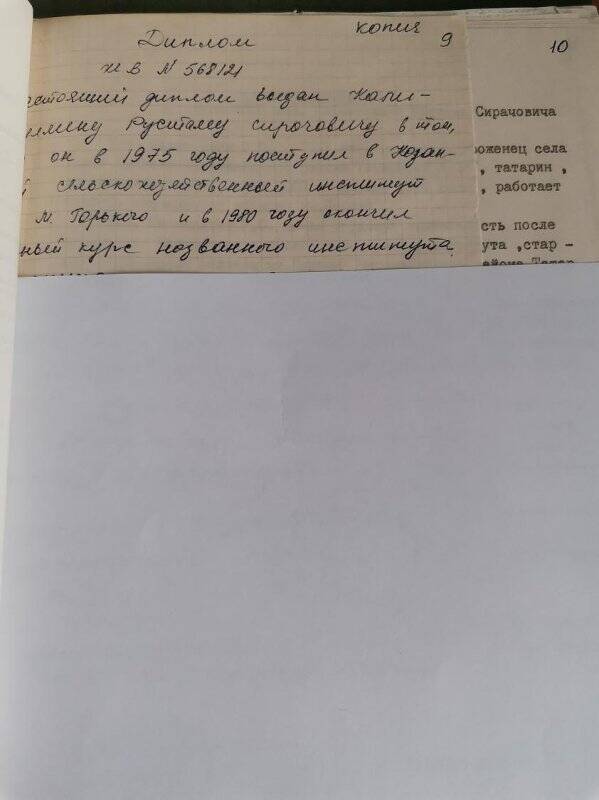 копия
Диплом 9
ЖВ N 568121
настоящий диплом выдан
Рустаму Сирачовичу в том,
он в 1975 году поступил в Казан-
й сельскохозяйственный институт
м. Горького и в 1980 году окончил
ный курс названного института.
10
Сирачовича
роженец села
, татарин ,
, работает
сть после
ута ,стар -
айона Татар